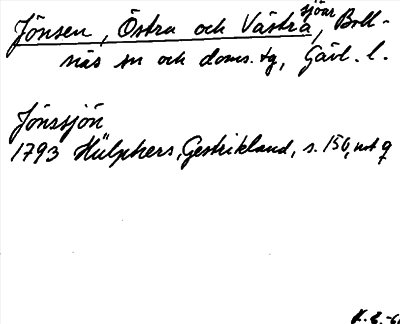 Jönsen, Östra och Västra, sjöar, Boll-
näs sn och doms. tg, Gävl. l.
Jönssjön
1793 Hülphers, Gestrikland, s. 150, not q